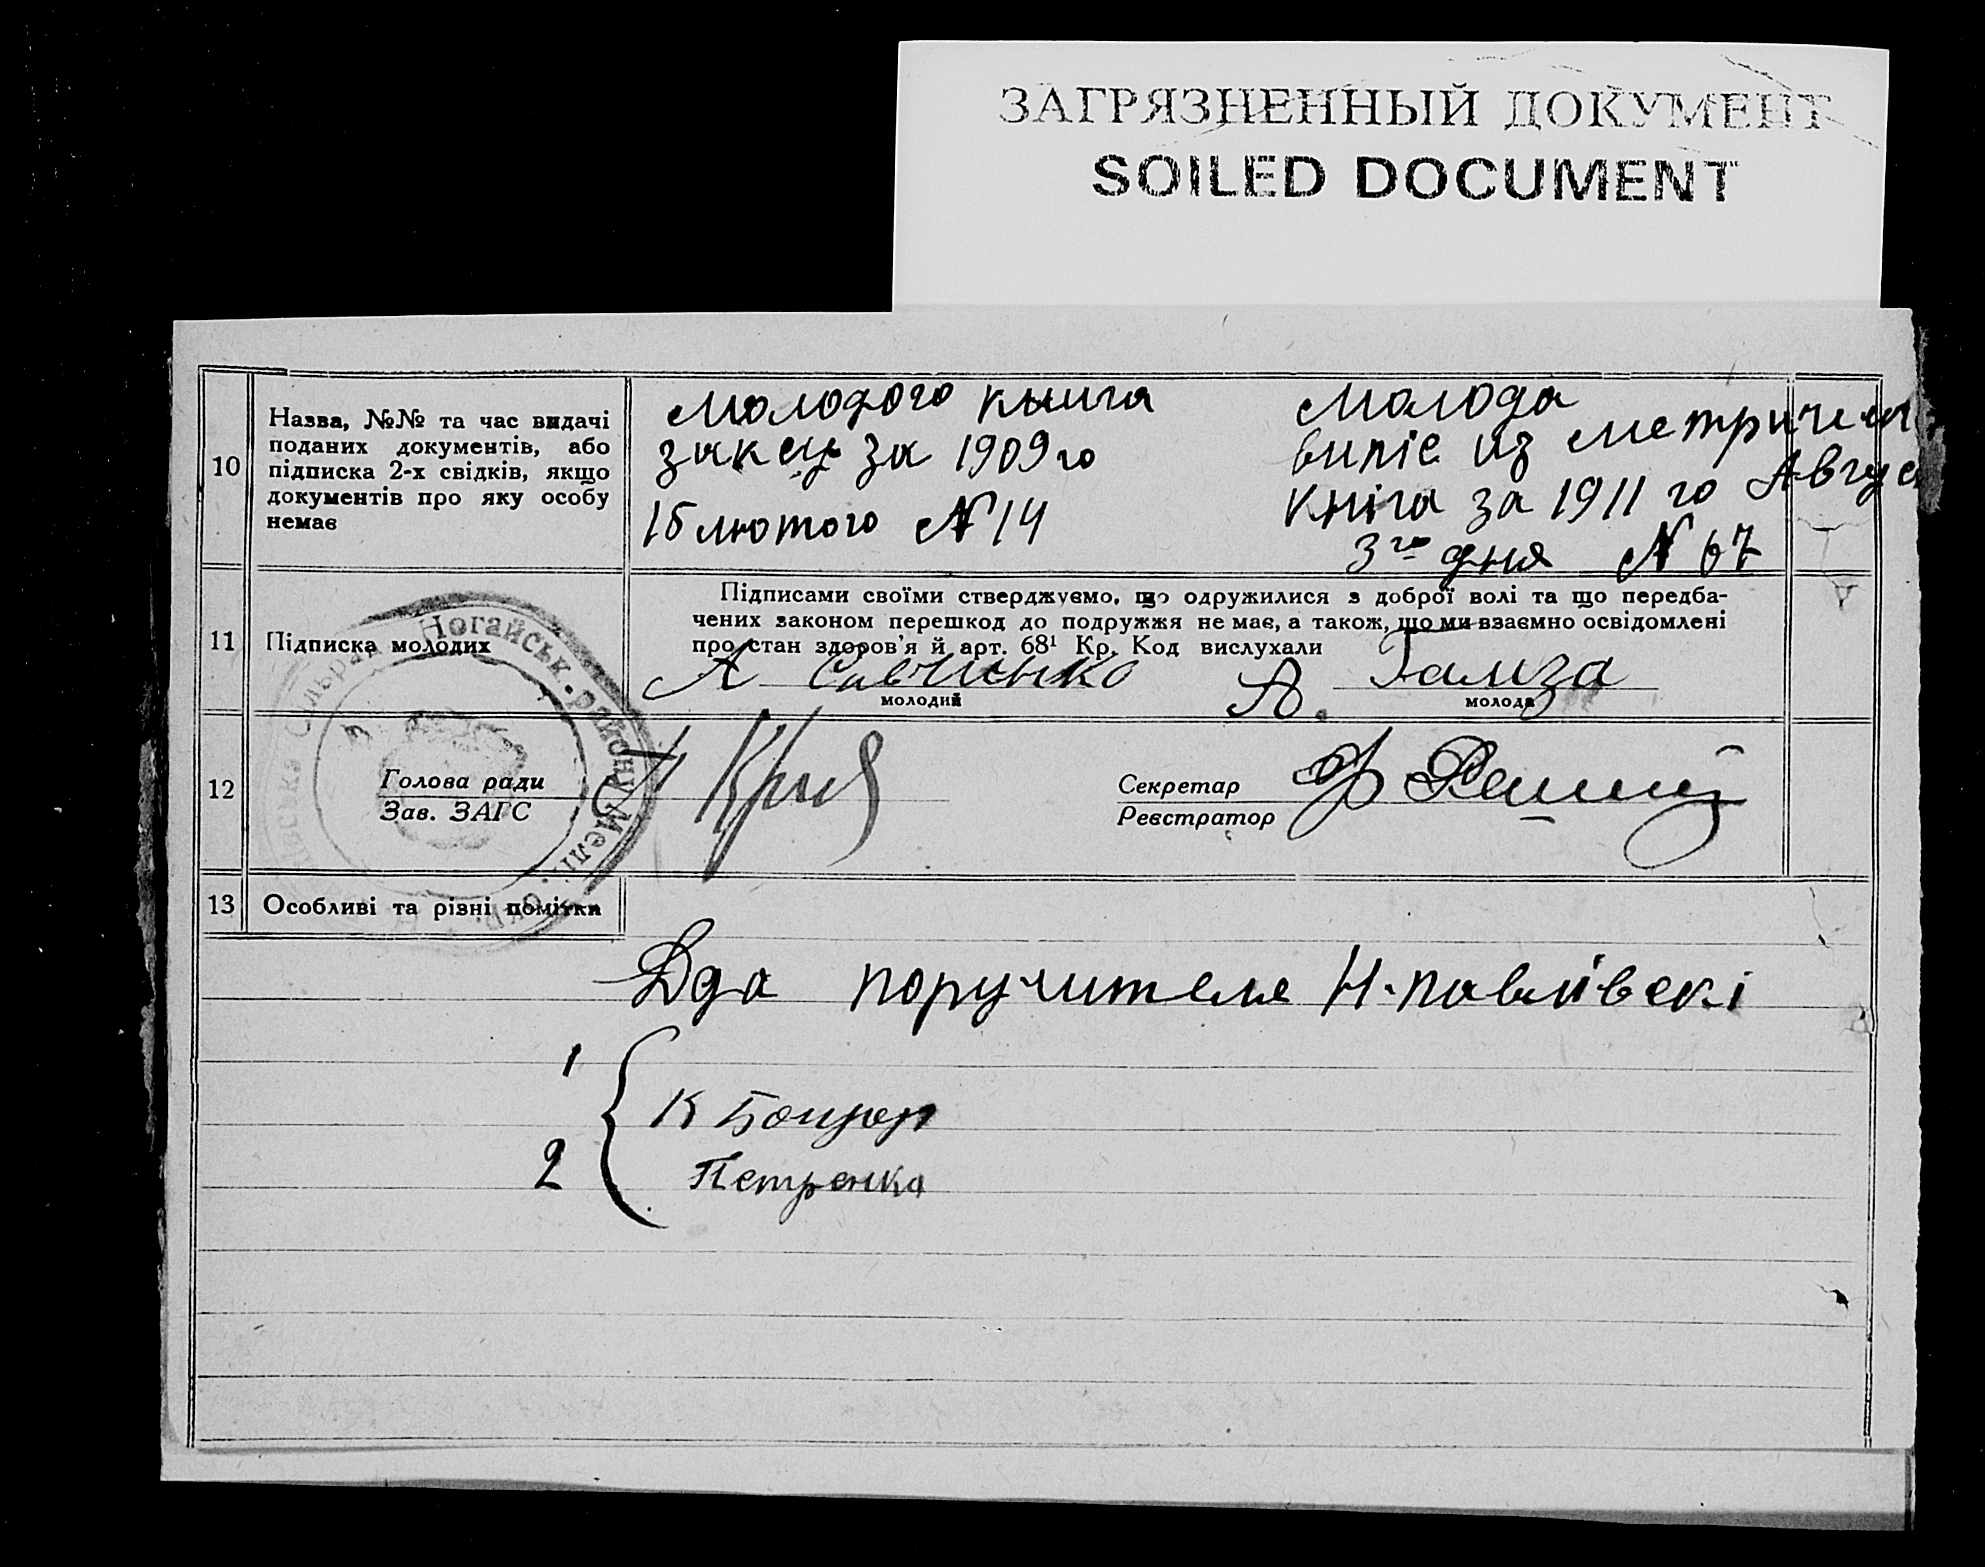 ЗАГРЯЗНЕННЫЙ ДОКУМЕНТ
SOILED DOCUMENT
10
Назва, №№ та час видачі
поданих документів, або
підписка 2-х свідків, якщо
документів про яку особу
немає
Молодого книга
за 1909 го
15 лютого № 14
Молода
випіс из метричем
кніга за 1911 го Авгус
3го дня № 67
11
Підписка молодих
Підписами своїми стверджуємо, що одружилися з доброї волі та що передба-
чених законом перешкод до подружжя не має, а також, що ми взаємно освідомлені
про стан здоров'я й арт. 68¹ Кр. Код вислухали
А Савчинко
молодий
А. Гамза
молода
12
Голова ради
Зав. ЗАГС
Секретар
Реєстратор
Ф
13
Особливі та різні помітки
Ногайськ. району Меліт. окр.
Два поручителе Н-павлівскі
1
К Бондар
2
Петренко